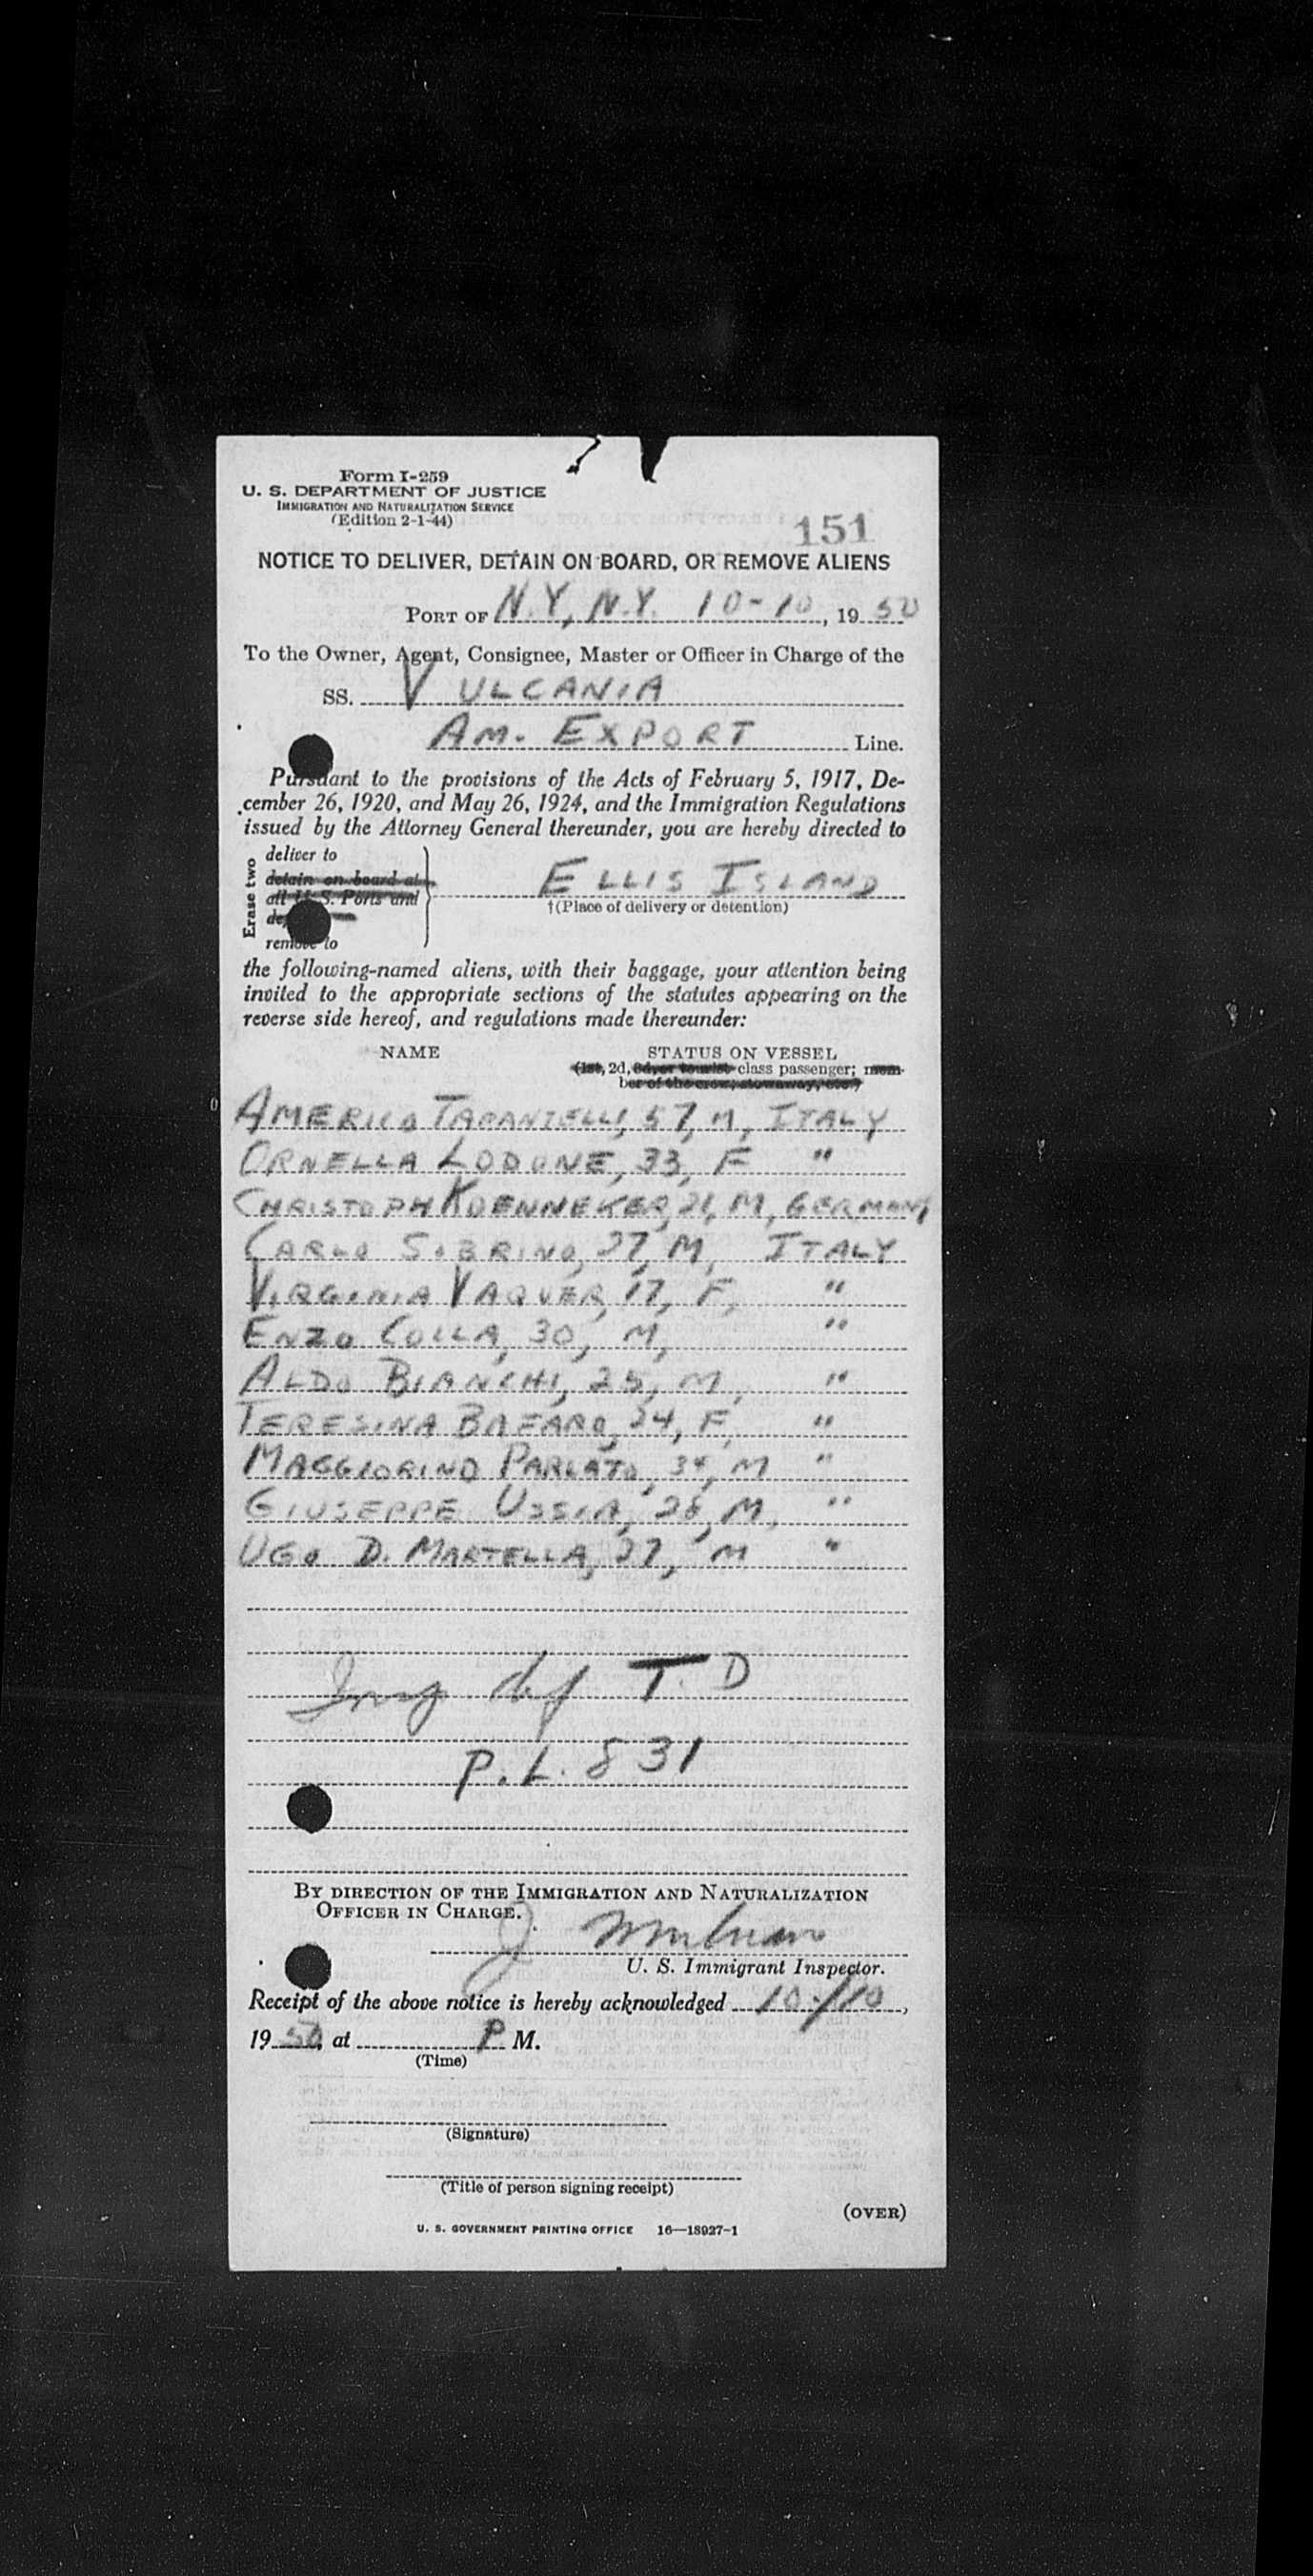 Form I-259
U. S. DEPARTMENT OF JUSTICE
IMMIGRATION AND NATURALIZATION SERVICE
(Edition 2-1-44)
151
NOTICE TO DELIVER, DETAIN ON BOARD, OR REMOVE ALIENS
PORT OF N.Y., N.Y. 10-10, 1950
To the Owner, Agent, Consignee, Master or Officer in Charge of the
SS. VULCANIA
AM. EXPORT Line.
Pursuant to the provisions of the Acts of February 5, 1917, De-
cember 26, 1920, and May 26, 1924, and the Immigration Regulations
issued by the Attorney General thereunder, you are hereby directed to
Erase two
deliver to
detain on board at
all U. S. Ports and
remove to
ELLIS ISLAND
†(Place of delivery or detention)
the following-named aliens, with their baggage, your attention being
invited to the appropriate sections of the statutes appearing on the
reverse side hereof, and regulations made thereunder:
NAME STATUS ON VESSEL
(1st, 2d, 3d, or tourist class passenger; mem-
ber of the crew, stowaway, etc.)
AMERICO 57, M, ITALY
ORNELLA LODONE, 33, F "
CHRISTOPH KOENNEKER, 21, M, GERMANY
CARLO SOBRINO, 27, M, ITALY
VIRGINIA VAQUER, 17, F, "
ENZO COLLA, 30, M, "
ALDO BIANCHI, 25, M, "
TERESINA BAFARO, 24, F, "
MAGGIORINO PARLATO, M "
GIUSEPPE USSIA, 28, M, "
UGO D. MARTELLA, 27, M "
T. D
P.L. 831
BY DIRECTION OF THE IMMIGRATION AND NATURALIZATION
OFFICER IN CHARGE.
J.
U. S. Immigrant Inspector.
Receipt of the above notice is hereby acknowledged 10/10,
1950, at P M.
(Time)
(Signature)
(Title of person signing receipt)
(OVER)
U. S. GOVERNMENT PRINTING OFFICE 16—18927-1